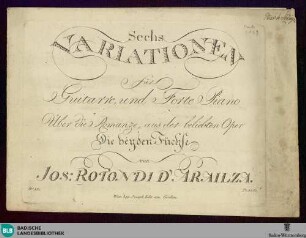 Sechs
VARIATIONEN
Für
Guitarre und Forte Piano
Über die Romanze, aus der beliebten Oper
Die beyden Füchse
von
JOS: ROTONDI D'ARAILZA.
BLB
BADISCHE
LANDESBIBLIOTHEK
Baden-Württemberg